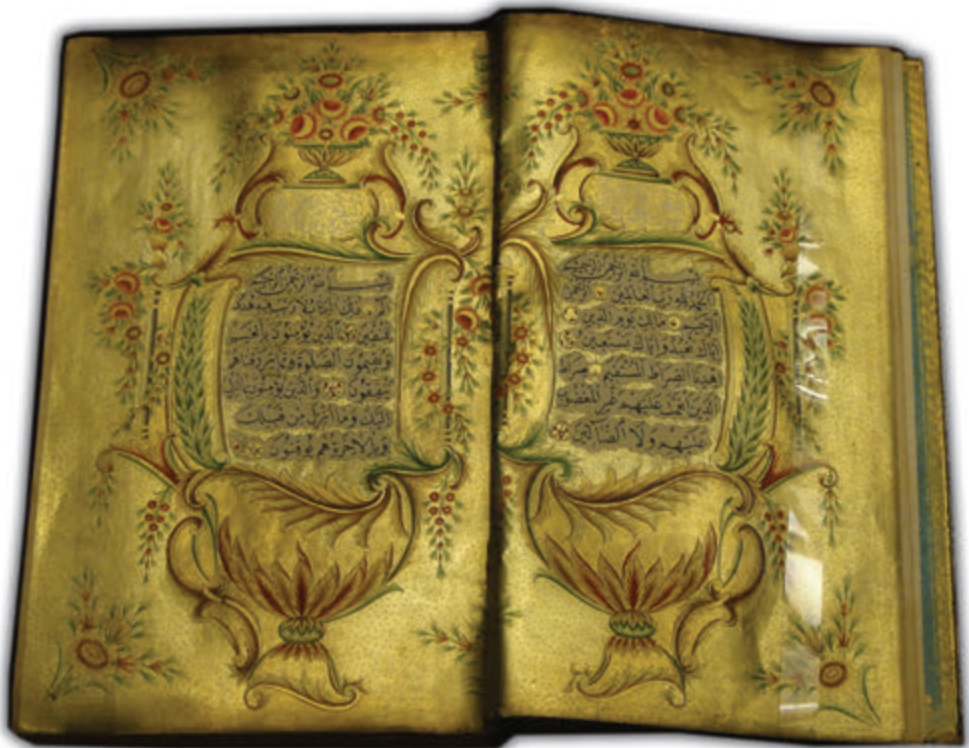 بسم الله الرحمن الرحيم
الحمد لله رب العالمين الرحمن
الرحيم مالك يوم الدين
اياك نعبد واياك نستعين
اهدنا الصراط المستقيم صراط
الذين انعمت عليهم غير المغضوب
عليهم ولا الضالين
بسم الله الرحمن الرحيم
الم ذلك الكتاب لا ريب فيه هدى
للمتقين الذين يؤمنون بالغيب
ويقيمون الصلوة ومما رزقناهم
ينفقون والذين يؤمنون بما انزل
اليك وما انزل من قبلك
وبالاخرة هم يوقنون